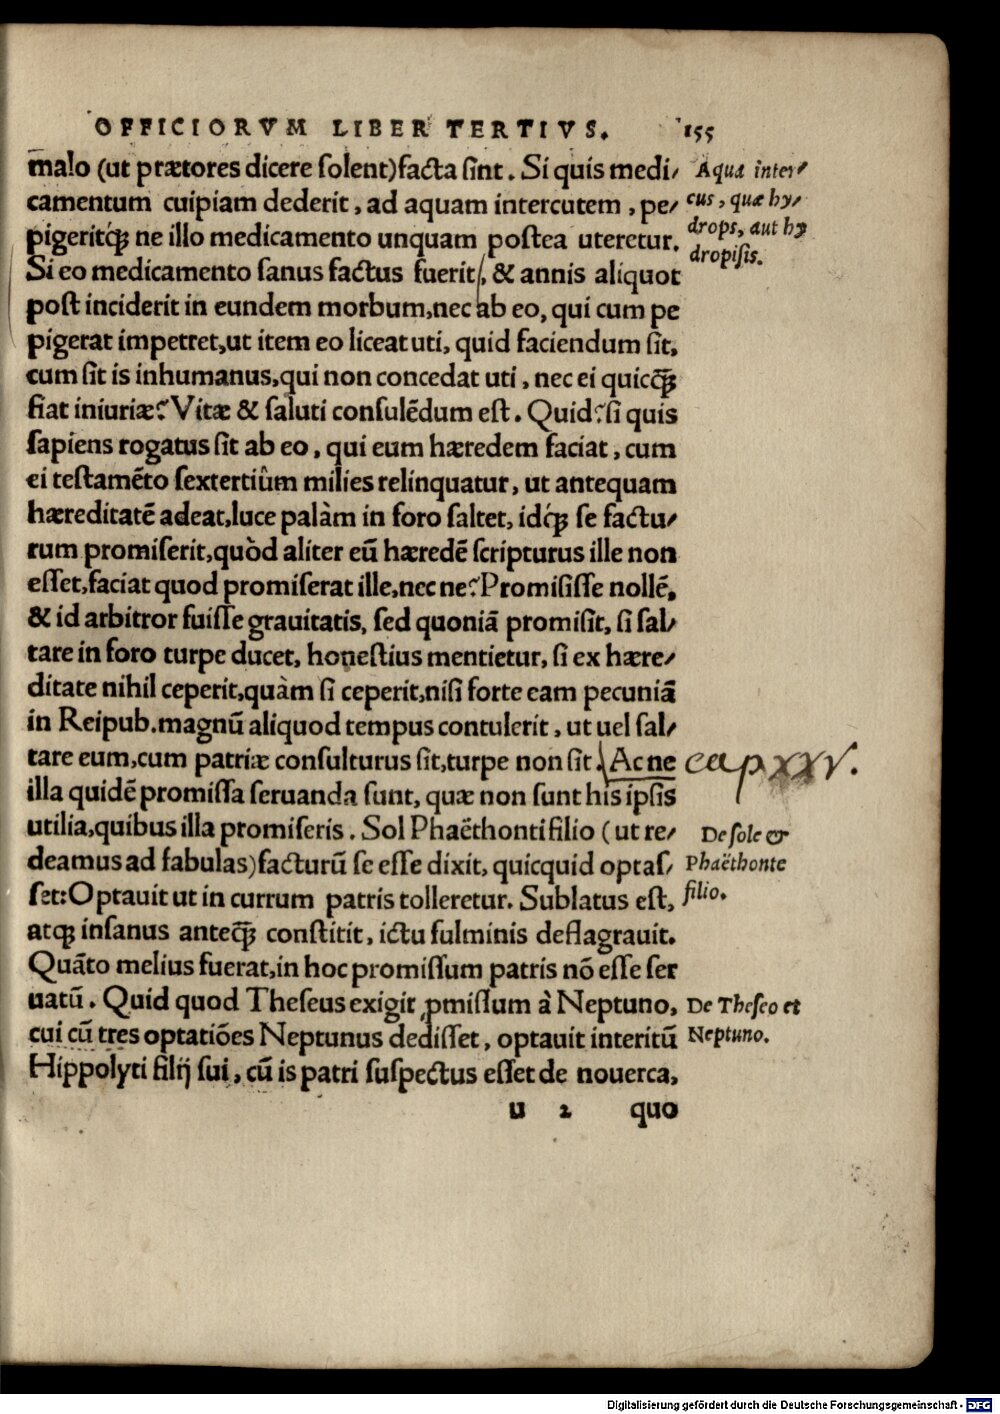 OFFICIORVM LIBER TERTIVS. 155
malo (ut prætores dicere ſolent) facta ſint. Si quis medi/
camentum cuipiam dederit, ad aquam intercutem, pe/
pigeritq́ꝫ ne illo medicamento unquam poſtea uteretur.
Si eo medicamento ſanus factus fuerit, & annis aliquot
poſt inciderit in eundem morbum, nec ab eo, qui cum pe
pigerat impetret, ut item eo liceat uti, quid faciendum ſit,
cum ſit is inhumanus, qui non concedat uti, nec ei quicq̃ꝫ
fiat iniuriæ? Vitæ & ſaluti conſulẽdum eſt. Quid? ſi quis
ſapiens rogatus ſit ab eo, qui eum hæredem faciat, cum
ei teſtamẽto ſextertiûm milies relinquatur, ut antequam
hæreditatẽ adeat, luce palàm in foro ſaltet, idq́ꝫ ſe factu/
rum promiſerit, quòd aliter eũ hæredẽ ſcripturus ille non
eſſet, faciat quod promiſerat ille, nec ne? Promiſiſſe nollẽ,
& id arbitror fuiſſe grauitatis, ſed quoniã promiſit, ſi ſal/
tare in foro turpe ducet, honeſtius mentietur, ſi ex hære/
ditate nihil ceperit, quàm ſi ceperit, niſi forte eam pecuniã
in Reipub. magnũ aliquod tempus contulerit, ut uel ſal/
tare eum, cum patriæ conſulturus ſit, turpe non ſit. Ac ne
illa quidẽ promiſſa ſeruanda ſunt, quæ non ſunt his ipſis
utilia, quibus illa promiſeris. Sol Phaëthonti filio (ut re/
deamus ad fabulas) facturũ ſe eſſe dixit, quicquid optaſ/
ſet: Optauit ut in currum patris tolleretur. Sublatus eſt,
atqꝫ inſanus anteq̃ꝫ conſtitit, ictu fulminis deflagrauit.
Quãto melius fuerat, in hoc promiſſum patris nõ eſſe ſer
uatũ. Quid quod Theſeus exigit ꝓmiſſum à Neptuno,
cui cũ tres optatiões Neptunus dediſſet, optauit interitũ
Hippolyti filij ſui, cũ is patri ſuſpectus eſſet de nouerca,
u 2 quo
Aqua inter/
cus, quæ hy/
drops, aut hy
dropiſis.
cap xxv.
De ſole &
Phaëthonte
filio.
De Theſeo et
Neptuno.
Digitalisierung gefördert durch die Deutsche Forschungsgemeinschaft - DFG